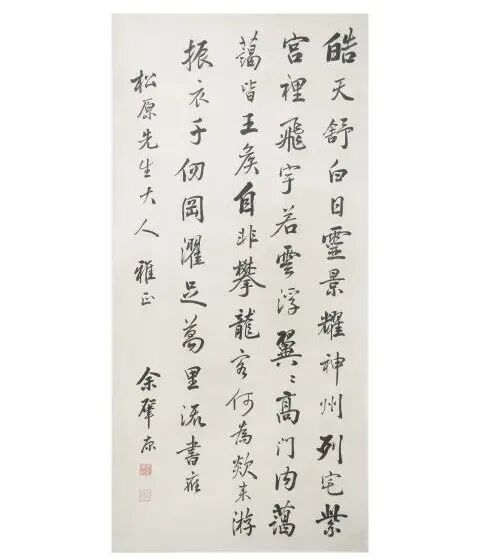 皓天舒白日靈景耀神州列宅紫
宮裡飛宇若雲浮翼〻高門内藹
藹皆王侯自非攀龍客何為欻来游
振衣千仞岡濯足萬里流書應
松原先生大人 雅正
余肇康